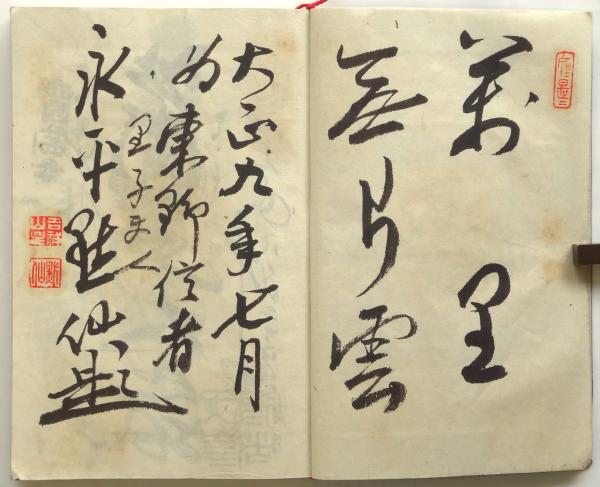 萬里
無片雲
大正九年七月
為東 信者
里子夫人
永平黙仙題